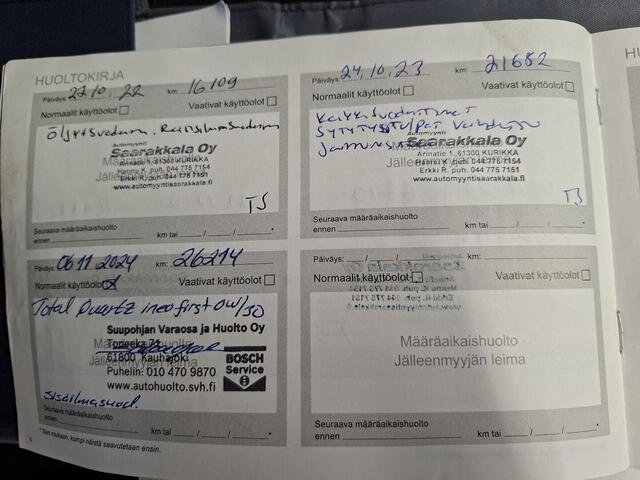 HUOLTOKIRJA
Päiväys: 27.10.22 km: 16109
Normaalit käyttöolot Vaativat käyttöolot
Öljy+Suodatin, Raitisilmasuodatin
Automyynti
Saarakkala Oy
Arinatie 1, 61300 KURIKKA
Hannu K. puh. 044 775 7154
Erkki R. puh. 044 775 7151
www.automyyntisaarakkala.fi
TS
Seuraava määräaikaishuolto
ennen km tai / / *
Päiväys: 24.10.23 km: 21682
Normaalit käyttöolot Vaativat käyttöolot
Kaikki Suodattimet
SYTYTYSTulpat
Automyynti
Saarakkala Oy
Arinatie 1, 61300 KURIKKA
Hannu K. puh. 044 775 7154
Erkki R. puh. 044 775 7151
www.automyyntisaarakkala.fi
TS
Seuraava määräaikaishuolto
ennen km tai / / *
Päiväys: 06 11 2024 km: 26214
Normaalit käyttöolot Vaativat käyttöolot
Total Quartz ineo first 0w/30
Suupohjan Varaosa ja Huolto Oy
Topeeka 71
61800 Kauhajoki
Puhelin: 010 470 9870
www.autohuolto.svh.fi
BOSCH
Service
Sisäilmasuod.
Seuraava määräaikaishuolto
ennen km tai / / *
* Sen mukaan, kumpi näistä saavutetaan ensin.
Päiväys: / / km:
Normaalit käyttöolot Vaativat käyttöolot
Määräaikaishuolto
Jälleenmyyjän leima
Seuraava määräaikaishuolto
ennen km tai / / *